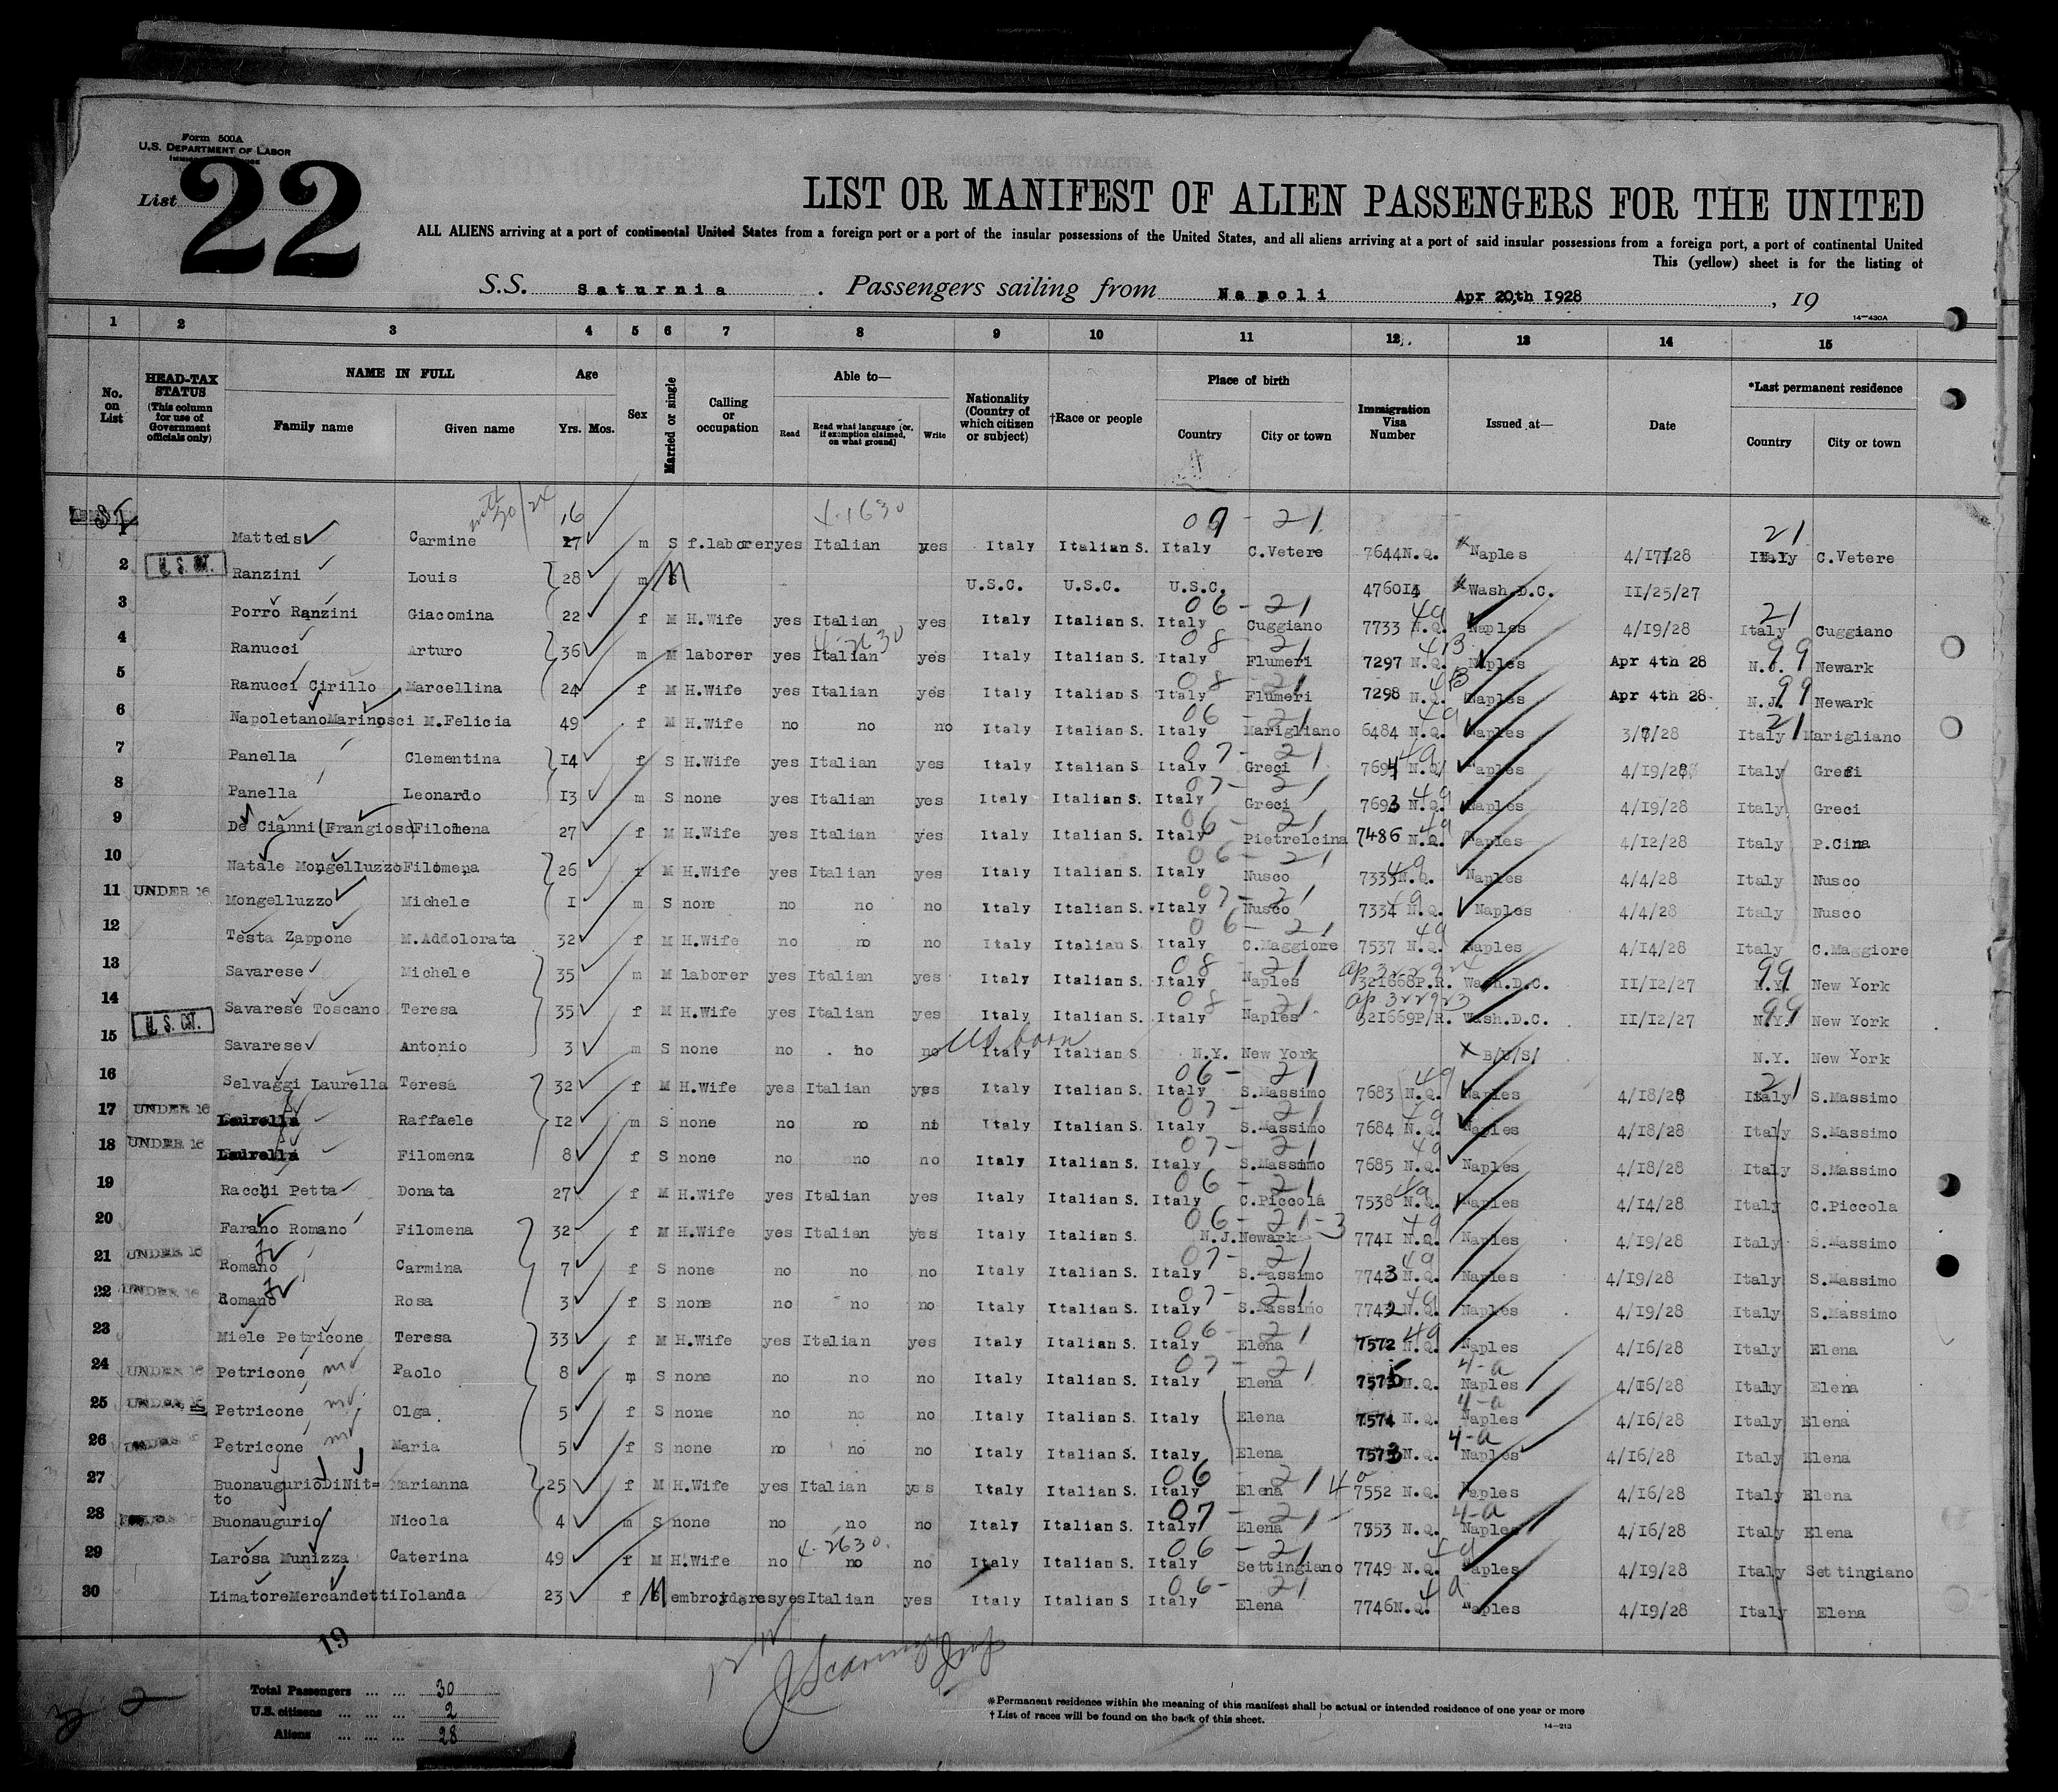 Form 500A
U.S. DEPARTMENT OF LABOR
List 22
LIST OR MANIFEST OF ALIEN PASSENGERS FOR THE UNITED
ALL ALIENS arriving at a port of continental United States from a foreign port or a port of the insular possessions of the United States, and all aliens arriving at a port of said insular possessions from a foreign port, a port of continental United
This (yellow) sheet is for the listing of
S.S. Saturnia . Passengers sailing from Napoli Apr 20,th 1928 , 19
14—430A
1 2 3 4 5 6 7 8 9 10 11 12 13 14 15
No. on List
HEAD-TAX STATUS (This column for use of Government officials only)
NAME IN FULL
Family name Given name
Age
Yrs. Mos.
Sex
Married or single
Calling or occupation
Able to—
Read Read what language (or, if exemption claimed, on what ground) Write
Nationality (Country of which citizen or subject)
†Race or people
Place of birth
Country City or town
Immigration Visa Number
Issued at—
Date
*Last permanent residence
Country City or town
16 4-1630 09 - 21 21
1 Matteis Carmine 27 m S f.laborer yes Italian yes Italy Italian S. Italy C.Vetere 7644 N.Q. Naples 4/17/28 Italy C.Vetere
2 U.S. CIT. Ranzini Louis 28 m M U.S.C. U.S.C. U.S.C. 476014 Wash.D.C. 11/25/27
06 - 21 49 21
3 Porro Ranzini Giacomina 22 f M H.Wife yes Italian yes Italy Italian S. Italy Cuggiano 7733 N.Q. Naples 4/19/28 Italy Cuggiano
4-2630 08 - 21 413 99
4 Ranucci Arturo 36 m M laborer yes Italian yes Italy Italian S. Italy Flumeri 7297 N.Q. Naples Apr 4th 28 N.J. Newark
08 21 99
5 Ranucci Cirillo Marcellina 24 f M H.Wife yes Italian yes Italy Italian S. Italy Flumeri 7298 N.Q. Naples Apr 4th 28 N.J. Newark
06 - 21 49 21
6 Napoletano Marinosci M.Felicia 49 f M H.Wife no no no Italy Italian S. Italy Marigliano 6484 N.Q. Naples 3/7/28 Italy Marigliano
07 - 21 49
7 Panella Clementina 14 f S H.Wife yes Italian yes Italy Italian S. Italy Greci 7694 N.Q. Naples 4/19/28 Italy Greci
07 - 21 49
8 Panella Leonardo 13 m S none yes Italian yes Italy Italian S. Italy Greci 7693 N.Q. Naples 4/19/28 Italy Greci
06 - 21 49
9 De Cianni (Frangioso) Filomena 27 f M H.Wife yes Italian yes Italy Italian S. Italy Pietrelcina 7486 N.Q. Naples 4/12/28 Italy P.Cina
06 - 21 49
10 Natale Mongelluzzo Filomena 26 f M H.Wife yes Italian yes Italy Italian S. Italy Nusco 7333 N.Q. Naples 4/4/28 Italy Nusco
07 - 21 49
11 UNDER 16 Mongelluzzo Michele 1 m S none no no no Italy Italian S. Italy Nusco 7334 N.Q. Naples 4/4/28 Italy Nusco
06 - 21 49
12 Testa Zappone M.Addolorata 32 f M H.Wife no no no Italy Italian S. Italy C.Maggiore 7537 N.Q. Naples 4/14/28 Italy C.Maggiore
08 - 21 99
13 Savarese Michele 35 m M laborer yes Italian yes Italy Italian S. Italy Naples 321668P.R. Wash.D.C. 11/12/27 N.Y. New York
08 - 21 ap 322923 99
14 Savarese Toscano Teresa 35 f M H.Wife yes Italian yes Italy Italian S. Italy Naples 321669P/R. Wash.D.C. 11/12/27 N.Y. New York
US born
15 U.S. CIT. Savarese Antonio 3 m S none no no no Italy Italian S N.Y. New York X B/U/S/ N.Y. New York
06 - 21 49 21
16 Selvaggi Laurella Teresa 32 f M H.Wife yes Italian yes Italy Italian S. Italy S.Massimo 7683 N.Q. Naples 4/18/28 Italy S.Massimo
07 - 21 49
17 UNDER 16 Laurella Raffaele 12 m S none no no no Italy Italian S. Italy S.Massimo 7684 N.Q. Naples 4/18/28 Italy S.Massimo
07 - 21 49
18 UNDER 16 Laurella Filomena 8 f S none no no no Italy Italian S. Italy S.Massimo 7685 N.Q. Naples 4/18/28 Italy S.Massimo
06 - 21 49
19 Racchi Petta Donata 27 f M H.Wife yes Italian yes Italy Italian S. Italy C.Piccola 7538 N.Q. Naples 4/14/28 Italy C.Piccola
06 - 21-3 49
20 Farano Romano Filomena 32 f M H.Wife yes Italian yes Italy Italian S. N.J. Newark 7741 N.Q. Naples 4/19/28 Italy S.Massimo
07 - 21 49
21 UNDER 16 Romano Carmina 7 f S none no no no Italy Italian S. Italy S.Massimo 7743 N.Q. Naples 4/19/28 Italy S.Massimo
07 - 21 49
22 UNDER 16 Romano Rosa 3 f S none no no no Italy Italian S. Italy S.Massimo 7742 N.Q. Naples 4/19/28 Italy S.Massimo
06 - 21 49
23 Miele Petricone Teresa 33 f M H.Wife yes Italian yes Italy Italian S. Italy Elena 7572 N.Q. Naples 4/16/28 Italy Elena
07 - 21 4-a
24 UNDER 16 Petricone Paolo 8 m S none no no no Italy Italian S. Italy Elena 7575 N.Q. Naples 4/16/28 Italy Elena
4-a
25 UNDER 16 Petricone Olga 5 f S none no no no Italy Italian S. Italy Elena 7574 N.Q. Naples 4/16/28 Italy Elena
4-a
26 UNDER 16 Petricone Maria 5 f S none no no no Italy Italian S. Italy Elena 7573 N.Q. Naples 4/16/28 Italy Elena
06 - 21 4a
27 Buonaugurio DiNit= Marianna 25 f M H.Wife yes Italian yes Italy Italian S. Italy Elena 7552 N.Q. Naples 4/16/28 Italy Elena
to
07 - 21 4-a
28 Buonaugurio Nicola 4 m S none no no no Italy Italian S. Italy Elena 7553 N.Q. Naples 4/16/28 Italy Elena
4-2630 06 - 21 49
29 Larosa Munizza Caterina 49 f M H.Wife no no no Italy Italian S. Italy Settingiano 7749 N.Q. Naples 4/19/28 Italy Settingiano
06 - 21 4a
30 Limatore Mercandetti Iolanda 23 f M embroyderes yes Italian yes Italy Italian S. Italy Elena 7746 N.Q. Naples 4/19/28 Italy Elena
19
Total Passengers ... ... 30
U.S. citizens ... ... ... 2
Aliens ... ... ... 28
*Permanent residence within the meaning of this manifest shall be actual or intended residence of one year or more
† List of races will be found on the back of this sheet.
14—213